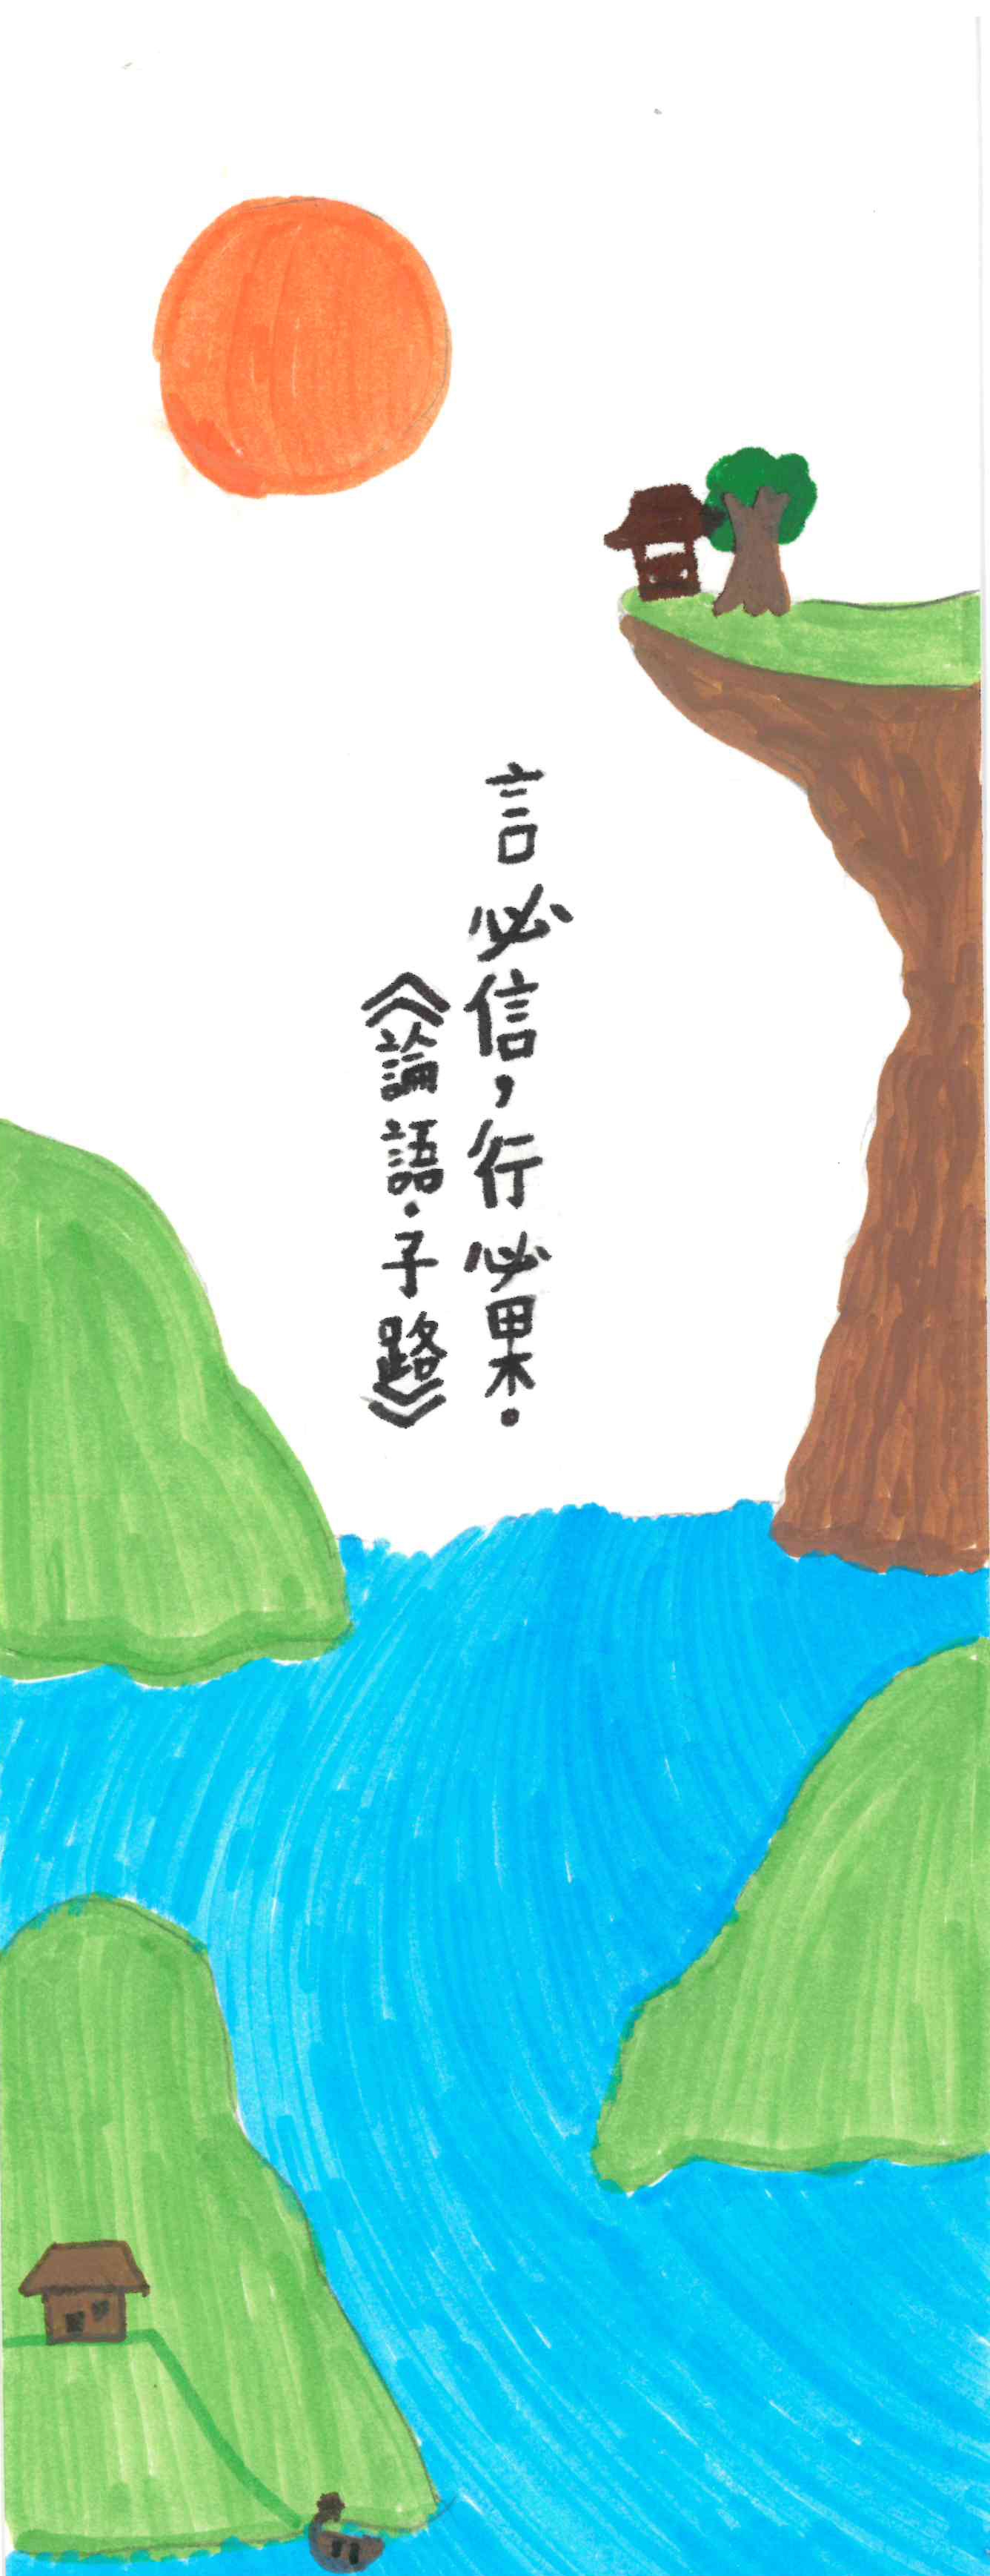 言必信，行必果．
《論語．子路》